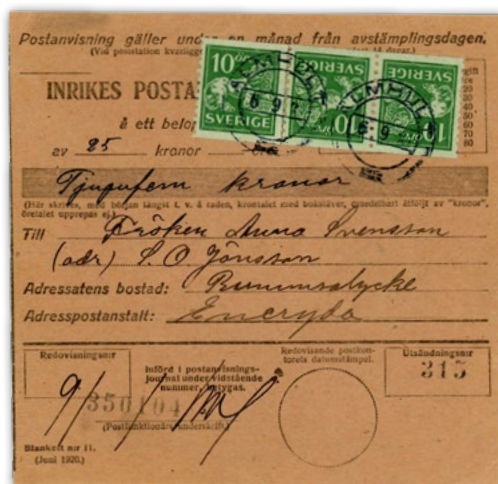 Postanvisning gäller under en månad från avstämplingsdagen.
(Vid poststation kvarligge
dagar.)
INRIKES POSTA
å ett belop
av 25 kronor
10 SVERIGE
SVERIGE 10
SVERIGE 10
ÄLMHULT
6 9
ÄLMHULT
6 9
Tjugufem kronor
(Här skrives, med början längst t. v. å raden, krontalet med bokstäver, omedelbart åtföljt av "kronor",
öretalet upprepas ej.)
Till Fröken Anna Svensson
(adr) S. O Jönsson
Adressatens bostad:
Adresspostanstalt: Eneryda
Redovisningsnr
Införd i postanvisnings-
journal under vidstående
nummer, betygas.
Redovisande postkon-
torets datumstämpel.
Utsändningsnr
315
350104
9/
(Postfunktionärs underskrift.)
Blankett nr 11.
(Juni 1920.)